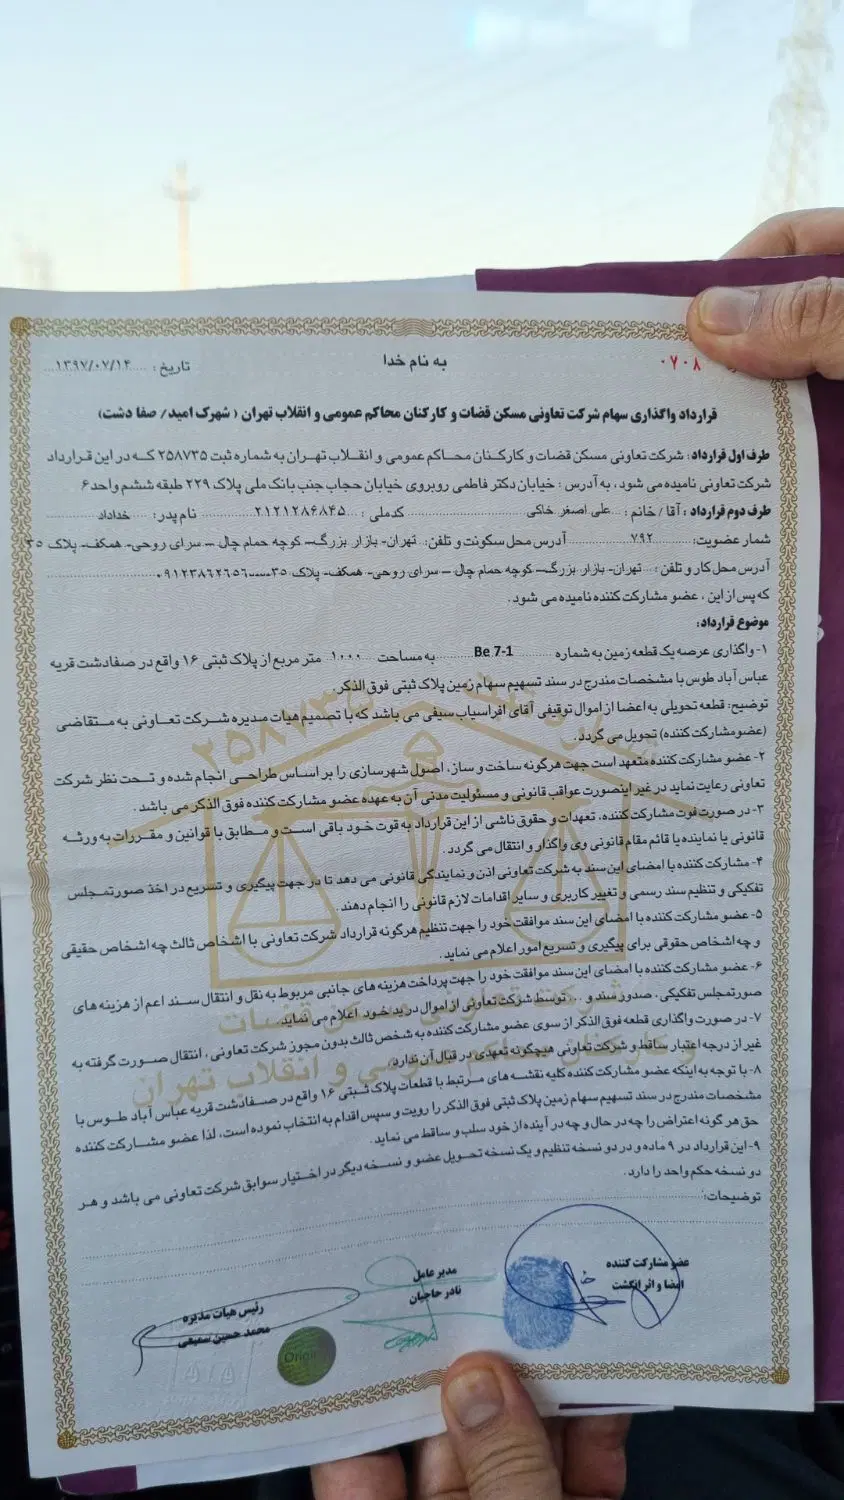 ۰۷۰۸
به نام خدا
تاریخ : ....۱۳۹۷/۰۷/۱۴...
قرارداد واگذاری سهام شرکت تعاونی مسکن قضات و کارکنان محاکم عمومی و انقلاب تهران ( شهرک امید/ صفا دشت)
طرف اول قرارداد: شرکت تعاونی مسکن قضات و کارکنان محاکم عمومی و انقلاب تهران به شماره ثبت ۲۵۸۷۳۵ که در این قرارداد
شرکت تعاونی نامیده می شود ، به آدرس : خیابان دکتر فاطمی روبروی خیابان حجاب جنب بانک ملی پلاک ۲۲۹ طبقه ششم واحد ۶
طرف دوم قرارداد : آقا / خانم : ...علی اصغر خاکی... کد ملی : ...۲۱۲۱۲۸۶۸۴۵... نام پدر: ...خداداد...
شماره عضویت: ...۷۹۲... آدرس محل سکونت و تلفن: تهران- بازار بزرگ– کوچه حمام چال – سرای روحی- همکف- پلاک ۳۵
آدرس محل کار و تلفن : تهران- بازار بزرگ– کوچه حمام چال – سرای روحی- همکف- پلاک ۳۵----۰۹۱۲۳۸۶۲۶۵۶
که پس از این ، عضو مشارکت کننده نامیده می شود .
موضوع قرارداد:
۱- واگذاری عرصه یک قطعه زمین به شماره ...Be 7-1... به مساحت ...۱۰۰۰... متر مربع از پلاک ثبتی ۱۶ واقع در صفادشت قریه
عباس آباد طوس با مشخصات مندرج در سند تسهیم سهام زمین پلاک ثبتی فوق الذکر.
توضیح: قطعه تحویلی به اعضا از اموال توقیفی آقای افراسیاب سیفی می باشد که با تصمیم هیات مدیره شرکت تعاونی به متقاضی
(عضو مشارکت کننده) تحویل می گردد.
۲- عضو مشارکت کننده متعهد است جهت هرگونه ساخت و ساز، اصول شهرسازی را بر اساس طراحی انجام شده و تحت نظر شرکت
تعاونی رعایت نماید در غیر اینصورت عواقب قانونی و مسئولیت مدنی آن به عهده عضو مشارکت کننده فوق الذکر می باشد .
۳- در صورت فوت مشارکت کننده، تعهدات و حقوق ناشی از این قرارداد به قوت خود باقی است و مطابق با قوانین و مقررات به ورثه
قانونی یا نماینده یا قائم مقام قانونی وی واگذار و انتقال می گردد .
۴- مشارکت کننده با امضای این سند به شرکت تعاونی اذن و نمایندگی قانونی می دهد تا در جهت پیگیری و تسریع در اخذ صورتمجلس
تفکیکی و تنظیم سند رسمی و تغییر کاربری و سایر اقدامات لازم قانونی را انجام دهند.
۵- عضو مشارکت کننده با امضای این سند موافقت خود را جهت تنظیم هرگونه قرارداد شرکت تعاونی با اشخاص ثالث چه اشخاص حقیقی
و چه اشخاص حقوقی برای پیگیری و تسریع امور اعلام می نماید.
۶- عضو مشارکت کننده با امضای این سند موافقت خود را جهت پرداخت هزینه های جانبی مربوط به نقل و انتقال سند اعم از هزینه های
صورتمجلس تفکیکی ، صدور سند و ... توسط شرکت تعاونی از اموال در ید خود اعلام می نماید.
۷- در صورت واگذاری قطعه فوق الذکر از سوی عضو مشارکت کننده به شخص ثالث بدون مجوز شرکت تعاونی ، انتقال صورت گرفته به
غیر از درجه اعتبار ساقط و شرکت تعاونی هیچگونه تعهدی در قبال آن ندارد.
۸- با توجه به اینکه عضو مشارکت کننده کلیه نقشه های مرتبط با قطعات پلاک ثبتی ۱۶ واقع در صفادشت قریه عباس آباد طوس با
مشخصات مندرج در سند تسهیم سهام زمین پلاک ثبتی فوق الذکر را رویت و سپس اقدام به انتخاب نموده است، لذا عضو مشارکت کننده
حق هر گونه اعتراض را چه در حال و چه در آینده از خود سلب و ساقط می نماید.
۹- این قرارداد در ۹ ماده و در دو نسخه تنظیم و یک نسخه تحویل عضو و نسخه دیگر در اختیار سوابق شرکت تعاونی می باشد و هر
دو نسخه حکم واحد را دارد.
توضیحات:
عضو مشارکت کننده
امضا و اثر انگشت
مدیر عامل
نادر حاجیان
رئیس هیات مدیره
محمد حسین سمیعی